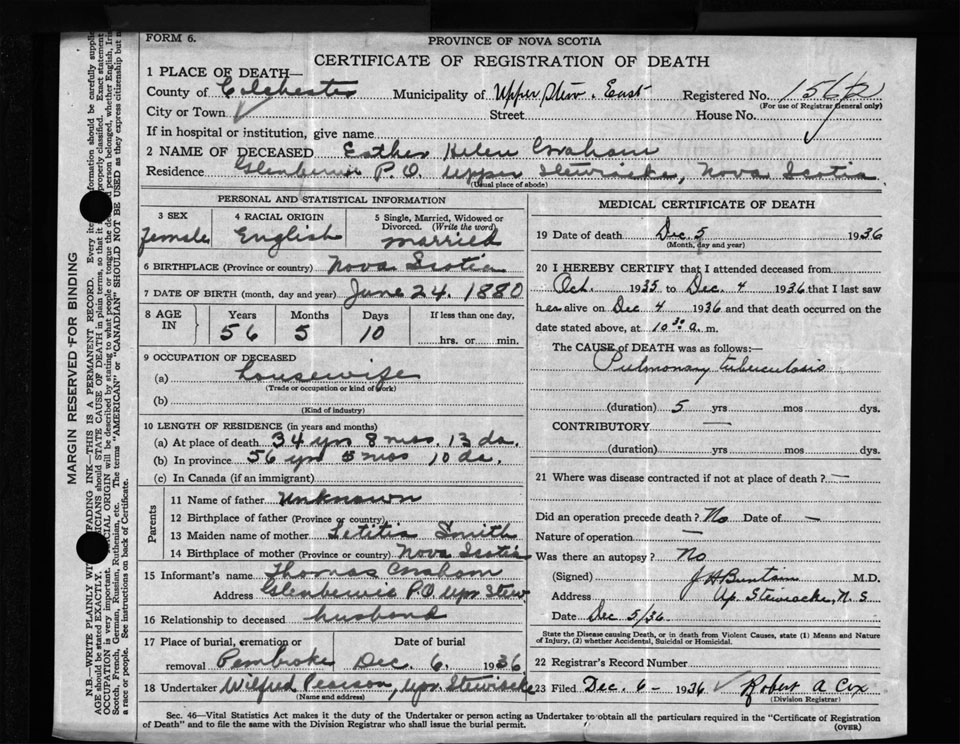 FORM 6.
PROVINCE OF NOVA SCOTIA
CERTIFICATE OF REGISTRATION OF DEATH
1 PLACE OF DEATH—
County of Colchester Municipality of Upper Stew. East Registered No.
(For use of Registrar General only)
City or Town Street House No.
If in hospital or institution, give name
2 NAME OF DECEASED Esther Helen Graham
Residence Glenbervie P.O. Upper Stewiacke, Nova Scotia
(Usual place of abode)
PERSONAL AND STATISTICAL INFORMATION
3 SEX 4 RACIAL ORIGIN 5 Single, Married, Widowed or Divorced. (Write the word)
Female English married
6 BIRTHPLACE (Province or country) Nova Scotia
7 DATE OF BIRTH (month, day and year) June 24. 1880
8 AGE IN Years Months Days If less than one day,
56 5 10 hrs. or min.
9 OCCUPATION OF DECEASED
(a) housewife
(Trade or occupation or kind of work)
(b)
(Kind of industry)
10 LENGTH OF RESIDENCE (in years and months)
(a) At place of death 34 yrs 8 mos. 13 da.
(b) In province 56 yrs 5 mos 10 da.
(c) In Canada (if an immigrant)
Parents
11 Name of father Unknown
12 Birthplace of father (Province or country)
13 Maiden name of mother Letitia Smith
14 Birthplace of mother (Province or country) Nova Scotia
15 Informant's name Thomas Graham
Address Glenbervie P.O. Upr Stew.
16 Relationship to deceased husband
17 Place of burial, cremation or removal Pembroke Date of burial Dec. 6. 1936
18 Undertaker Wilfred Pearson, Upr. Stewiacke
(Name and address)
MEDICAL CERTIFICATE OF DEATH
19 Date of death Dec. 5 1936
(Month, day and year)
20 I HEREBY CERTIFY that I attended deceased from
Oct. 1935 to Dec. 4 1936 that I last saw
her alive on Dec 4 1936 and that death occurred on the
date stated above, at 10 30 a. m.
The CAUSE of DEATH was as follows:—
Pulmonary tuberculosis
(duration) 5 yrs mos dys.
CONTRIBUTORY —
(duration) yrs. mos. dys.
21 Where was disease contracted if not at place of death? —
Did an operation precede death? No Date of —
Nature of operation —
Was there an autopsy? No
(Signed) J A Buntain M.D.
Address Up. Stewiacke, N. S.
Date Dec 5/36.
State the Disease causing Death, or in death from Violent Causes, state (1) Means and Nature of Injury, (2) whether Accidental, Suicidal or Homicidal.
22 Registrar's Record Number
23 Filed Dec. 6 – 1936 Robert A Cox
(Division Registrar)
Sec. 46—Vital Statistics Act makes it the duty of the Undertaker or person acting as Undertaker to obtain all the particulars required in the "Certificate of Registration
of Death" and to file the same with the Division Registrar who shall issue the burial permit.
(OVER)
MARGIN RESERVED FOR BINDING
N.B.—WRITE PLAINLY FADING INK—THIS IS A PERMANENT RECORD. Every information should be carefully supplied
AGE should be stated EXACTLY. should STATE CAUSE OF DEATH in plain terms, so that it properly classified. Exact statement
OCCUPATION is very important. ORIGIN will be described by stating to what people or tongue the person belonged, whether English,
Scotch, French, German, Russian, Ruthenian, etc. The terms "AMERICAN" or "CANADIAN" SHOULD NOT BE USED as they express citizenship but
a race or people. See instructions on back of Certificate.